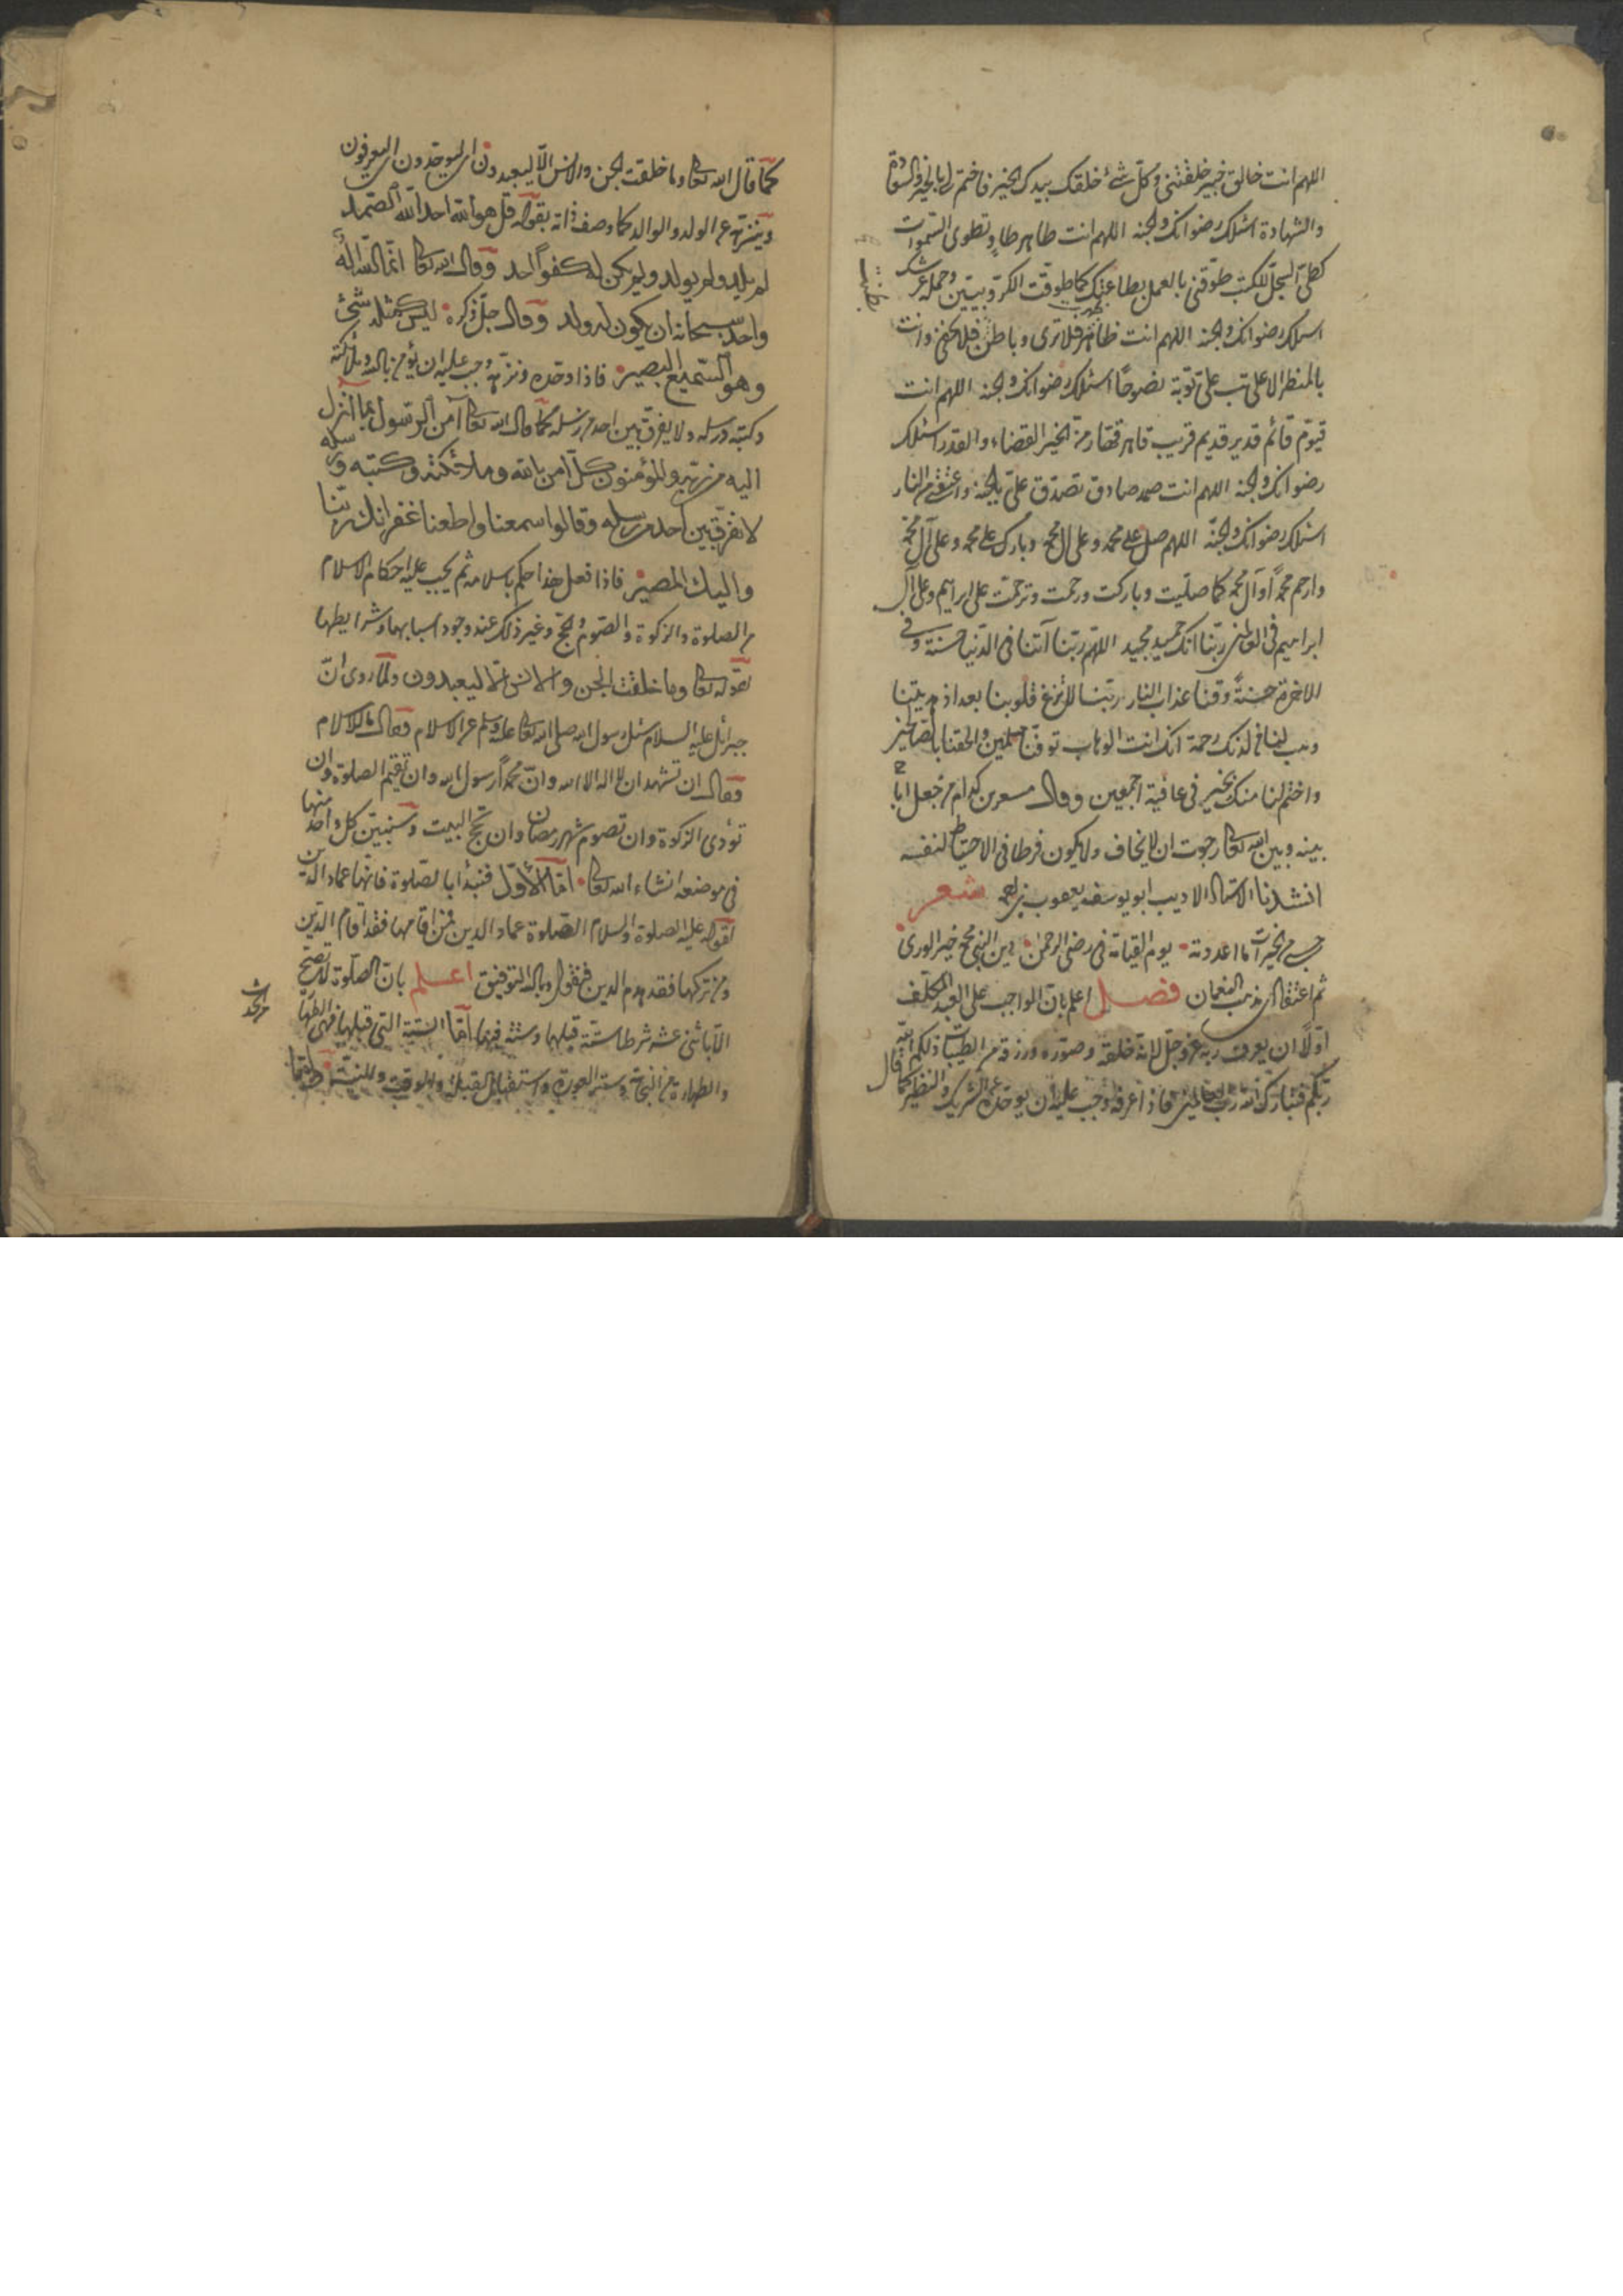 اللهم انت خالق خبير خلقتنى وكل شئ خلقك بيدك الخير فاختم لى بالخير والسعادة
والشهادة اسئلك رضوانك والجنة اللهم انت طاهر طاو تطوى السموات
كطى السجل للكتب طوقنى بالعمل بطاعتك كما طوقت الكروبيين وحملة عرشك
اسئلك رضوانك والجنة اللهم انت ظاهر فلا ترى وباطن فلا تخفى وانت
بالمنظر الاعلى تب على توبة نصوحا اسئلك رضوانك والجنة اللهم انت
قيوم قائم قدير قديم قريب قاهر قهار من الخير القضاء والقدر اسئلك
رضوانك والجنة اللهم انت صمد صادق تصدق على بالجنة واعتقنى من النار
اسئلك رضوانك والجنة اللهم صل على محمد وعلى آل محمد وبارك على محمد وعلى آل محمد
وارحم محمدا وآل محمد كما صليت وباركت ورحمت وترحمت على ابراهيم وعلى آل
ابراهيم فى العالمين ربنا انك حميد مجيد اللهم ربنا آتنا فى الدنيا حسنة وفى
الاخرة حسنة وقنا عذاب النار ربنا لا تزغ قلوبنا بعد اذ هديتنا
وهب لنا من لدنك رحمة انك انت الوهاب توفنا مسلمين والحقنا بالصالحين
واختم لنا منك بخير فى عافية اجمعين وقال مسعر بن كدام من جعل ابا ح
بينه وبين الله تعالى رجوت ان لا يخاف ولا يكون فرط فى الاحتياط لنفسه
انشدنا الاستاد الاديب ابو يوسف يعقوب بن احمد شعر
حسبى من الخيرات ما اعددته يوم القيامة فى رضى الرحمن دين النبى محمد خير الورى
ثم اعتقادى مذهب النعمان فصل اعلم بان الواجب على العبد المكلف
اولا ان يعرف ربه عز وجل لانه خلقه وصوره ورزقه من الطيبات ذلكم الله
ربكم فتبارك الله رب العالمين فاذا عرفه وجب عليه ان يوحده عن الشريك والنظير كما قال
كما قال الله تعالى وما خلقت الجن والانس الا ليعبدون اى ليوحدون اى ليعرفون
وينزهه عن الولد والوالد كما وصف ذاته بقوله قل هو الله احد الله الصمد
لم يلد ولم يولد ولم يكن له كفوا احد وقال الله تعالى انما الله اله
واحد سبحانه ان يكون له ولد وقال جل ذكره ليس كمثله شئ
وهو السميع البصير فاذا وحده ونزهه وجب عليه ان يؤمن بالله وملائكته
وكتبه ورسله ولا يفرق بين احد من رسله كما قال الله تعالى آمن الرسول بما انزل
اليه من ربه والمؤمنون كل آمن بالله وملائكته وكتبه ورسله
لا نفرق بين احد من رسله وقالوا سمعنا واطعنا غفرانك ربنا
واليك المصير فاذا فعل هذا حكم باسلامه ثم يجب عليه احكام الاسلام
من الصلوة والزكوة والصوم والحج وغير ذلك عند وجود اسبابها وشرايطها
لقوله تعالى وما خلقت الجن والانس الا ليعبدون ولما روى ان
جبرائيل عليه السلام سئل رسول الله صلى الله تعالى عليه وسلم عن الاسلام فقال ما الاسلام
فقال ان تشهد ان لا اله الا الله وان محمدا رسول الله وان تقيم الصلوة وان
تؤدى الزكوة وان تصوم شهر رمضان وان تحج البيت وسنبين كل واحد منها
فى موضعه انشاء الله تعالى اما الاول فنبدأ بالصلوة فانها عماد الدين
لقوله عليه الصلوة والسلام الصلوة عماد الدين فمن اقامها فقد اقام الدين
ومن تركها فقد هدم الدين فنقول وبالله التوفيق اعلم بان الصلوة لا تصح
الا باثنى عشر شرطا ستة قبلها وستة فيها اما الستة التى قبلها فهى الطهارة
من الحدث
والطهارة من النجاسة وستر العورة واستقبال القبلة والوقت والنية